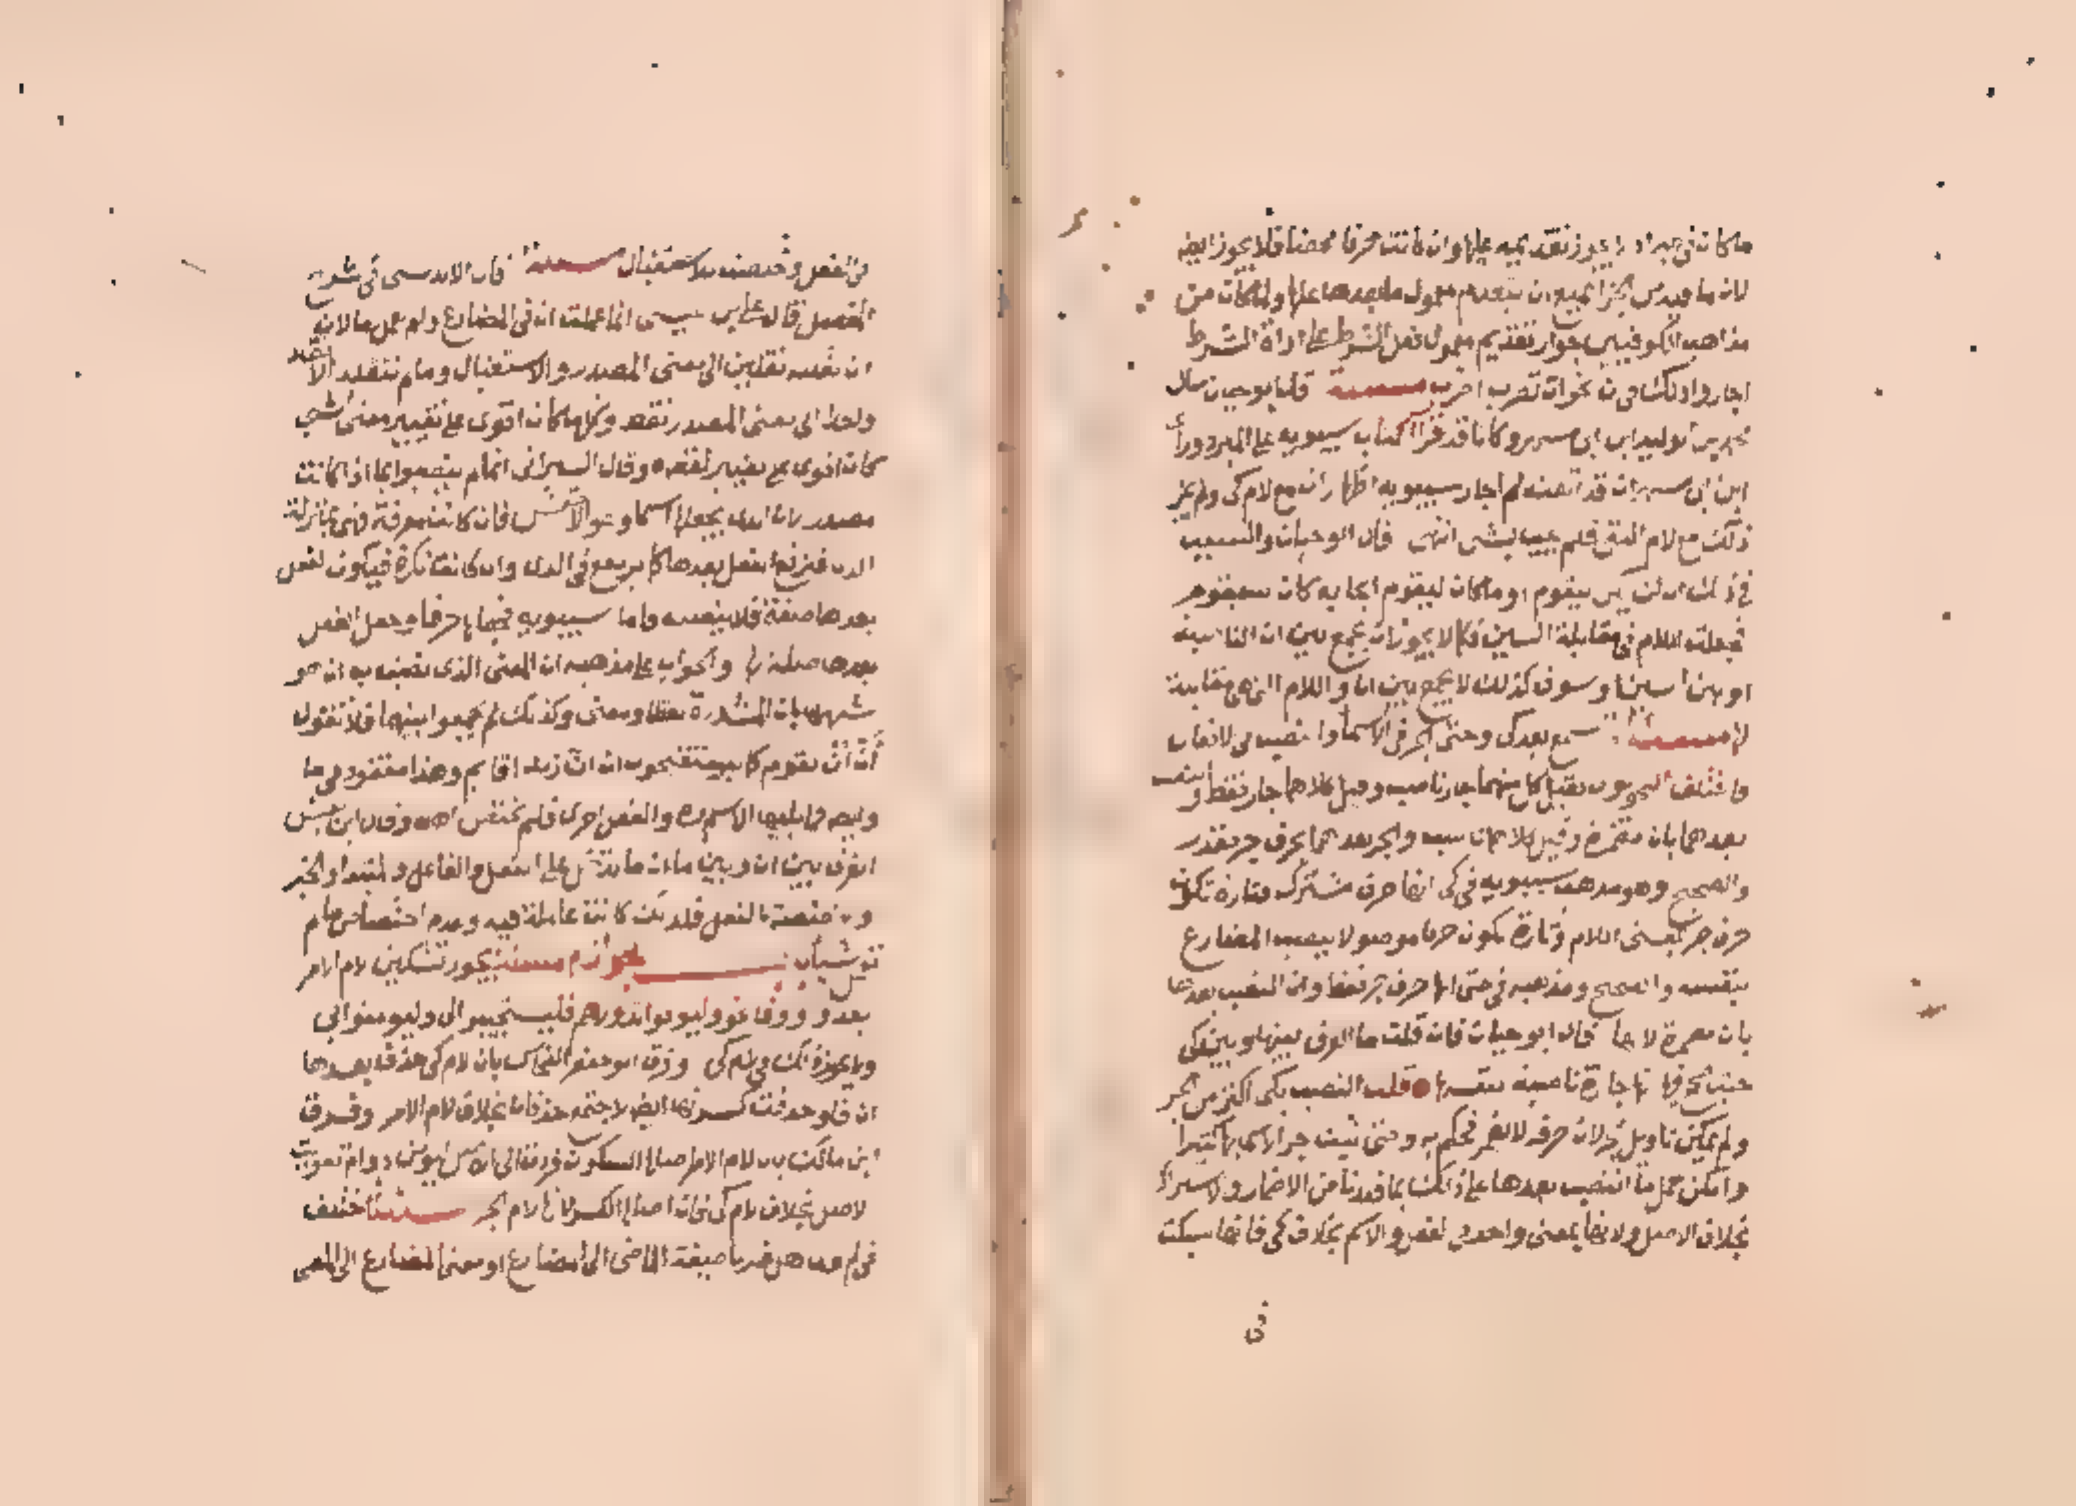 ما كانت في خبر اذ لا يجوز تقديمه عليها وان كانت حرفا محضا فلا يجوز ايضا
لان ما فيه من الجزا يمنع ان يتقدم معمول ما بعدها عليها ولما كان من
مذاهب الكوفيين جواز تقديم معمول فعل الشرط على اداة الشرط
اجازوا ذلك في نحو ان تضرب اضرب مسئلة قال ابو حيان سال
محمد بن الوليد ابن ابي مسهر وكانا قد قرآ كتاب سيبويه على المبرد وراى
ابن ابي مسهر ان قد اتقنه لم اجاز سيبويه اظهار ان مع لام كي ولم يجز
ذلك مع لام النفي فلم يجب بشي انتهى قال ابو حيان والسبب
في ذلك ان لم يكن ليقوم او ما كان ليقوم ايجابه كان سيقوم
فجعلت اللام في مقابلة السين فكما لا يجوز ان يجمع بين ان الناصبة
او بين السين او سوف كذلك لا يجمع بين ان واللام التي هي مقابلة
لها مسئلة سمع بعد كي وحتى الجر في الاسما والنصب في الافعال
فاختلف النحويون فقيل كل منهما جار ناصب وقيل كلاهما جار فقط والنصب
بعدهما بان مضمرة وقيل كلاهما ناصب والجر بعدهما بحرف جر مقدر
والصحيح وهو مذهب سيبويه في كي انها حرف مشترك فتارة تكون
حرف جر بمعنى اللام وتارة تكون حرفا موصولا ينصب المضارع
بنفسه والصحيح ومذهبه في حتى انها حرف جر فقط وان النصب بعدها
بان مضمرة لا بها قال ابو حيان فان قلت ما الفرق بينها وبين كي
حيث صححوا فيها انها جارة ناصبة بنفسها قلت النصب بكي اكثر من الجر
ولم يمكن تاويل الجر لان حرفه لا يضمر فحكم به وحتى ثبت جر الاسما بها كثيرا
وامكن حمل ما انتصب بعدها على ذلك بما قدرنا من الاضمار والاشتراك
بخلاف الاصل ولانها بمعنى واحد في الفعل والاسم بخلاف كي فانها سبكت
في
في الفعل وخلصته للاستقبال مسئلة قال الاندلسي في شرح
المفصل قال علي بن عيسى انما عملت ان في المضارع ولم تعمل ما لانه
ان نقلته نقلين الى معنى المصدر والاستقبال وما لم تنقله الا
واحدا الى معنى المصدر فقط وكل ما كان اقوى على تغيير معنى الشي
كان اقوى على تغيير لفظه وقال السيرافي انما لم ينصبوا بما اذا كانت
مصدرا لان الذي يجعلها اسما وهو الاخفش فان كانت معرفة فهي بمنزلة
الذي فيرتفع الفعل بعدها كما يرتفع في الذي وان كانت نكرة فيكون الفعل
بعدها صفة فلا ينصبه واما سيبويه فيجعلها حرفا وجعل الفعل
بعدها صلة لها والجواب على مذهبه ان المعنى الذي نصب به ان هو
شبهها بان المشددة لفظا ومعنى وكذلك لم يجمعوا بينهما فلا تقول
أنّ أن تقوم كما يستقبحون ان انّ زيدا قائم وهذا مفقود في ما
وايضا فما يليها الاسم مرة والفعل اخرى فلم تختص اهـ وقال ابن يعيش
الفرق بين ان وبين ما ان ما تدخل على الفعل والفاعل والمبتدا والخبر
وان مختصة بالفعل فلذلك كانت عاملة فيه ولعدم اختصاص ما لم
تعمل شيا باب الجوازم مسئلة يجوز تسكين لام الامر
بعد و وو فا نحو وليوفوا نذورهم فليستجيبوا لي وليومنوا بي
ولا يجوز ذلك في لام كي وفرق ابو جعفر النحاس بان لام كي حذف بعدها
ان فلو حذفت كسرتها ايضا لاجتمع حذفان بخلاف لام الامر وفرق
ابن مالك بان لام الامر اصلها السكون فردت الى الاصل ليومن دوام تفويت
الاصل بخلاف لام كي فان اصلها الكسر لانها لام الجر مسئلة اختلف
في لم ولما هل غيرتا صيغة الماضي الى المضارع او معنى المضارع الى المضي